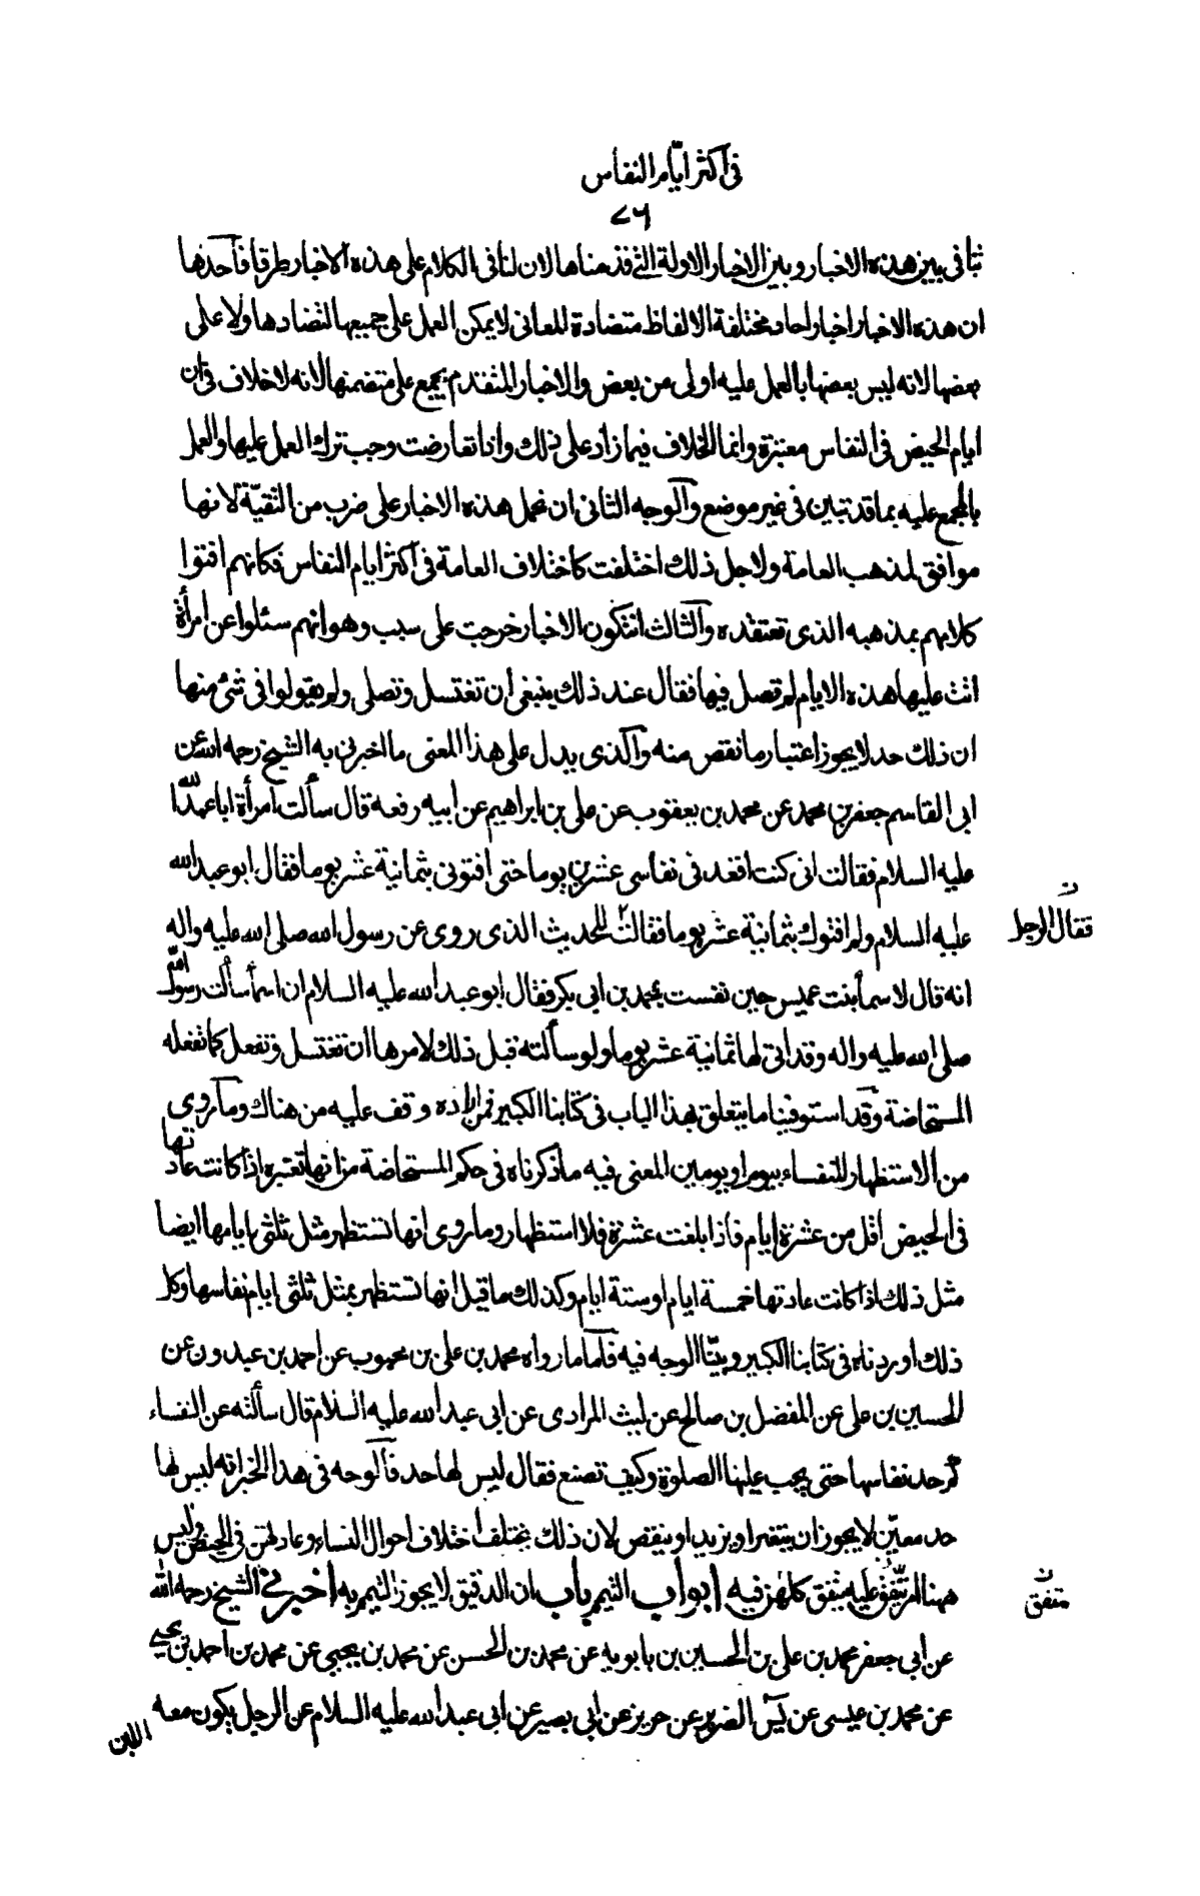 فى اكثر ايّام النفاس
٧٦
تنافى بين هذه الاخبار وبين الاخبار الاولة التى قدمناها لان لنا فى الكلام على هذه الاخبار طرقا فاحدها
ان هذه الاخبار اخبار احاد مختلفة الالفاظ متضادة المعانى لا يمكن العمل على جميعها لتضادها ولا على
بعضها لانه ليس بعضها بالعمل عليه اولى من بعض والاخبار المتقدمة مجمع على متضمنها لانه لا خلاف فى ان
ايام الحيض فى النفاس معتبرة وانما الخلاف فيما زاد على ذلك واذا تعارضت وجب ترك العمل عليها والعمل
بالمجمع عليه بما قد تبين فى غير موضع والوجه الثانى ان نحمل هذه الاخبار على ضرب من التقيّة لانها
موافق لمذهب العامة ولاجل ذلك اختلفت كاختلاف العامة فى اكثر ايام النفاس فكانهم افتوا
كلامهم بمذهبه الذى تعتقده والثالث ان تكون الاخبار خرجت على سبب وهو انهم سئلوا عن امرأة
اتت عليها هذه الايام لم تصل فيها فقال عند ذلك ينبغى ان تغتسل وتصلى ولم يقولوا فى شئ منها
ان ذلك حد لا يجوز اعتبار ما نقص منه والذى يدل على هذا المعنى ما اخبرنى به الشيخ رحمه الله عن
ابى القاسم جعفر بن محمد عن محمد بن يعقوب عن على بن ابراهيم عن ابيه رفعه قال سألت امرأة ابا عبد الله
عليه السلام فقالت انى كنت اقعد فى نفاسى عشرين يوما حتى افتونى بثمانية عشر يوما فقال ابو عبد الله
عليه السلام ولم افتوك بثمانية عشر يوما فقالت للحديث الذى روى عن رسول الله صلى الله عليه واله
فقال الرجل ن
انه قال لاسما بنت عميس حين نفست بمحمد بن ابى بكر فقال ابو عبد الله عليه السلام ان اسما سألت رسول الله
صلى الله عليه واله وقد اتى لها ثمانية عشر يوما ولو سألته قبل ذلك لامرها ان تغتسل وتفعل كما تفعله
المستحاضة وقد استوفينا ما يتعلق بهذا الباب فى كتابنا الكبير فمن اراده وقف عليه من هناك وما روى
من الاستظهار للنفساء بيوم او يومين المعنى فيه ما ذكرناه فى حكم المستحاضة من انها تعتبره اذا كانت عادتها
فى الحيض اقل من عشرة ايام فاذا بلغت عشرة فلا استظهار وما روى انها تستظهر مثل ثلثى ايامها ايضا
مثل ذلك اذا كانت عادتها خمسة ايام او ستة ايام وكذلك ما قيل انها تستظهر بمثل ثلثى ايام نفاسها وكل
ذلك اوردناه فى كتابنا الكبير وبيّنا الوجه فيه فاما ما رواه محمد بن على بن محبوب عن احمد بن عبدون عن
الحسين بن على عن المفضل بن صالح عن ليث المرادى عن ابى عبد الله عليه السلام قال سألته عن النفساء
كم حد نفاسها حتى يجب عليها الصلوة وكيف تصنع فقال ليس لها حد فالوجه فى هذا الخبر انه ليس لها
حد معيّن لا يجوز ان يتغير او يزيد او ينقص لان ذلك يختلف اختلاف احوال النساء وعادتهن فى الحيض وليس
ههنا امر يتّفق عليه يتفق كلهن فيه ابواب التيمم باب ان الدقيق لا يجوز التيمم به اخبرنى الشيخ رحمه الله
متفق ن
عن ابى جعفر محمد بن على بن الحسين بن بابويه عن محمد بن الحسن عن محمد بن يحيى عن محمد بن احمد بن يحيى
عن محمد بن عيسى عن يس الضرير عن حريز عن ابى بصير عن ابى عبد الله عليه السلام عن الرجل يكون معه
اللبن